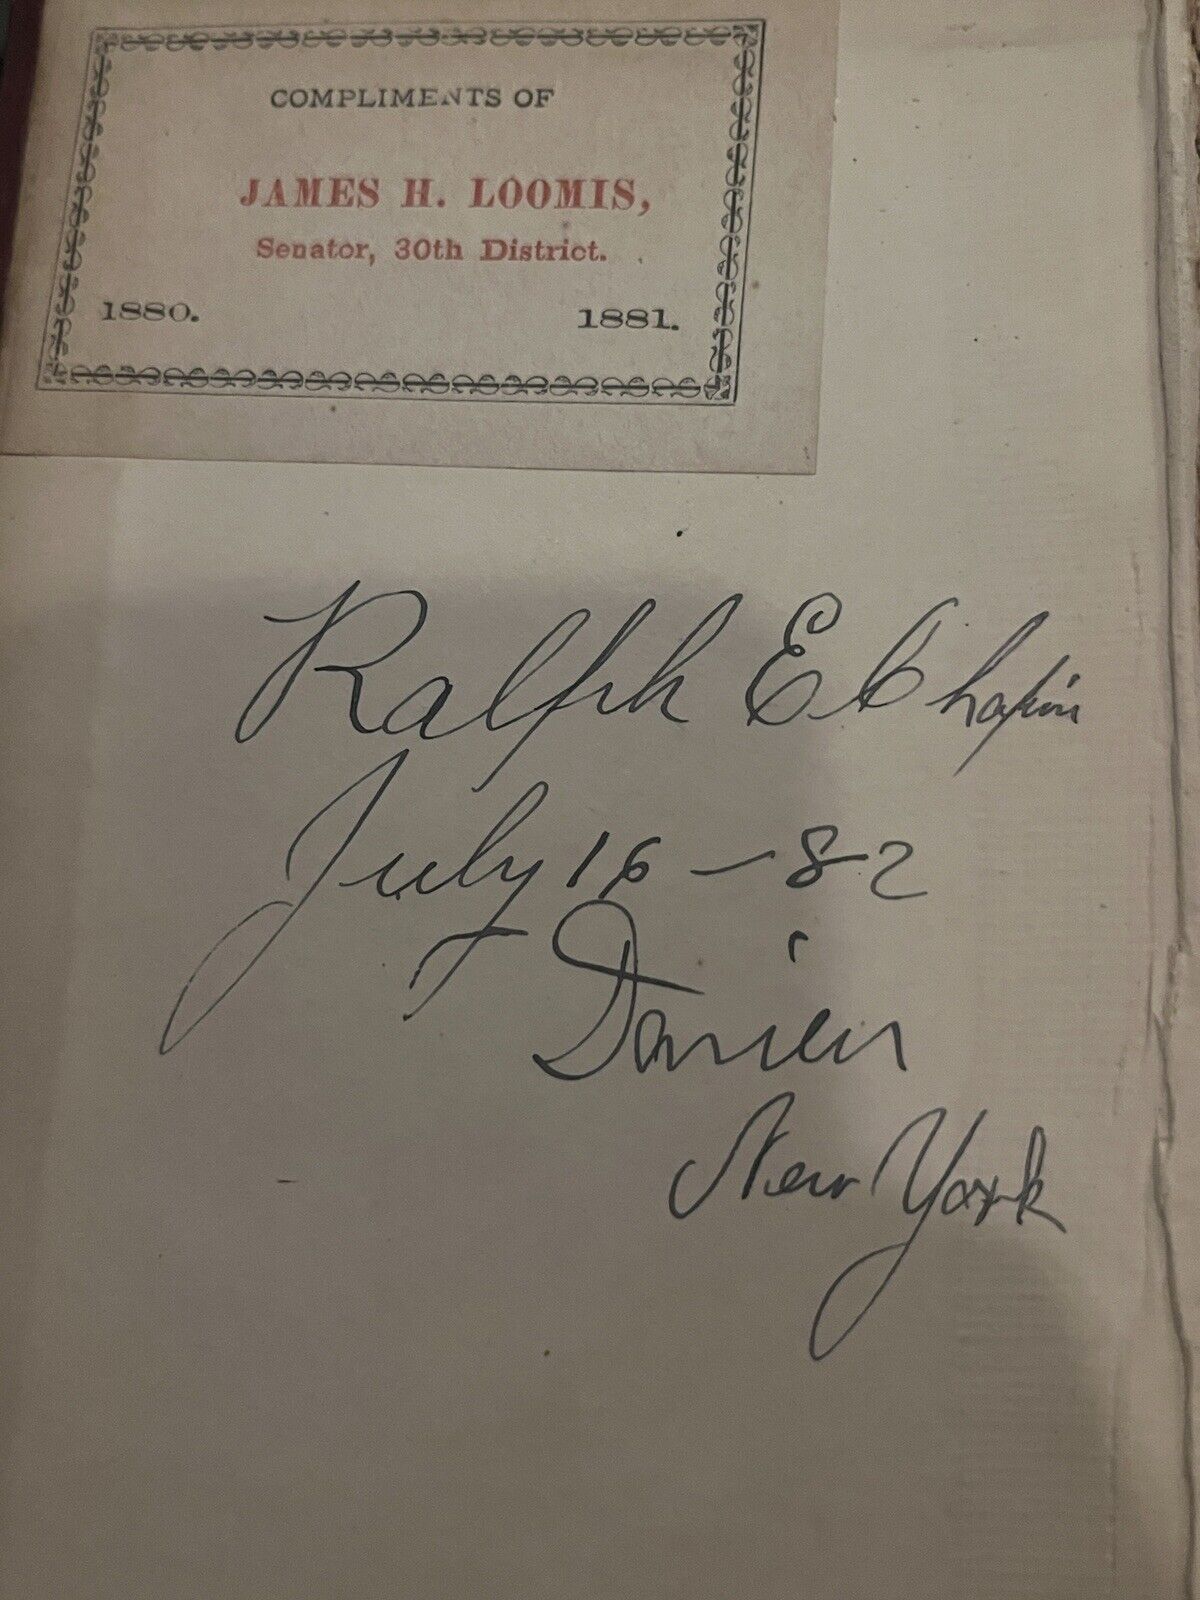 COMPLIMENTS OF
JAMES H. LOOMIS,
Senator, 30th District.
1880. 1881.
Ralph E Chapin
July 16 - 82
Darien
New York